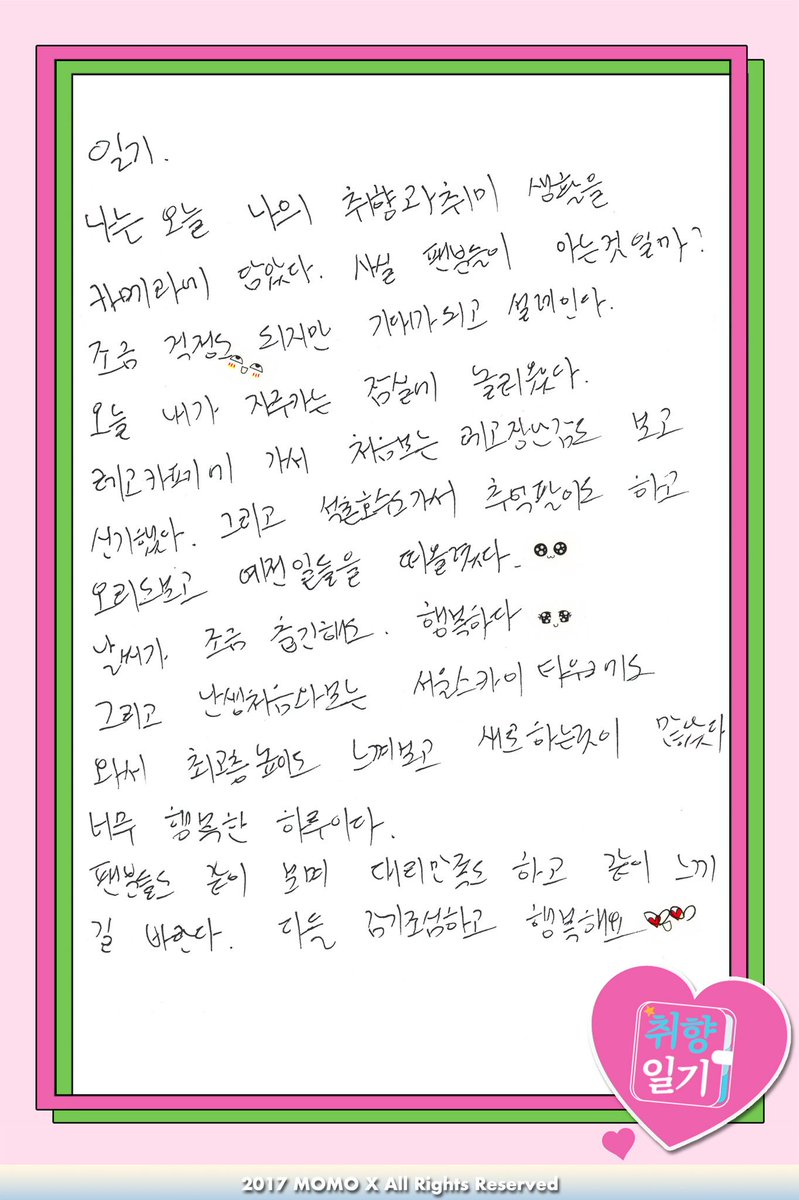 일기.
나는 오늘 나의 취향과 취미 생활을
카메라에 담았다. 사실 팬분들이 아는것일까?
조금 걱정도 되지만 기대가되고 설레인다.
오늘 내가 자주가는 잠실에 놀러왔다.
레고카페에 가서 처음보는 레고장난감도 보고
신기했다. 그리고 석촌호수도가서 추억팔이도 하고
오리도보고 예전일들을 떠올렸다.
날씨가 조금 춥긴해도. 행복하다
그리고 난생처음와보는 서울스카이 타워에도
와서 최고층높이도 느껴보고 새로하는것이 많았다
너무 행복한 하루이다.
팬분들도 같이 보며 대리만족도 하고 같이 느끼
길 바란다. 다들 감기조심하고 행복해요
취향
일기
2017 MOMO X All Rights Reserved